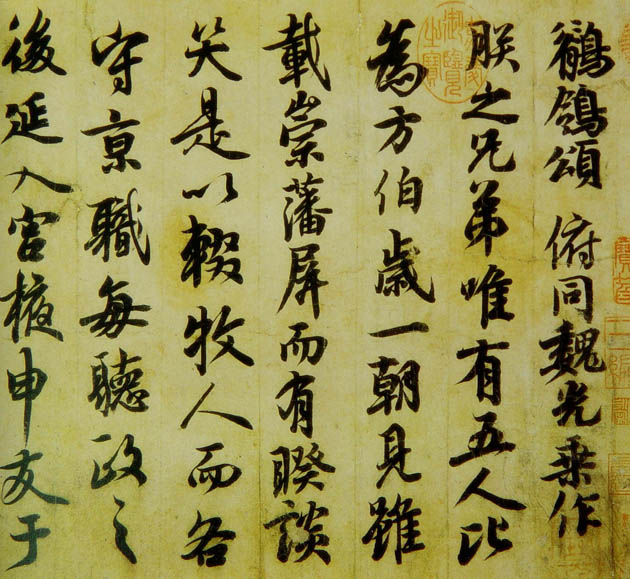 鶺鴒頌 俯同魏光乘作
朕之兄弟唯有五人比
為方伯歲一朝見雖
載崇藩屏而有睽談
笑是以輟牧人而各
守京職每聽政之
後延入宮掖申友于